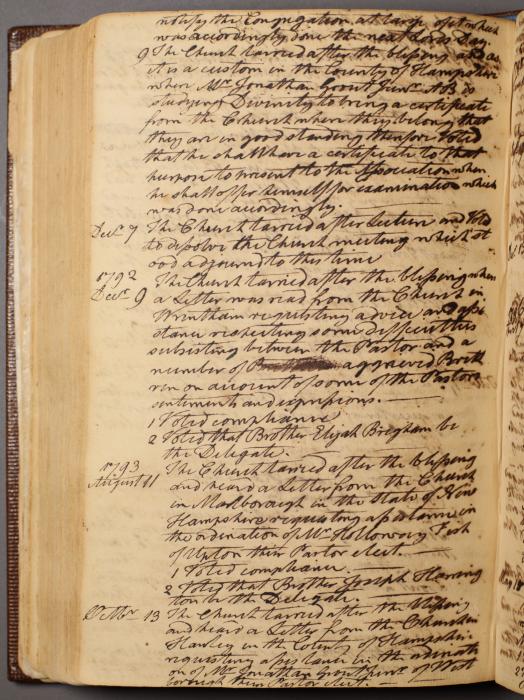 notify the Congregation at large of it which
was accordingly done the next Lords Day.
9 The Church tarried after the blessing and as
it is a custom in the County of Hampshire
when Mr. Jonathan Grout Junr. A B. is
studying Divinity to bring a certificate
from the Church where they belong that
they are in good standing therefore Voted
that he shall have a certificate to that
purpose to present to the Association when
he shall offer himself for examination which
was done accordingly.
Decr. 7 The Church tarried after Lecture and Voted
to dissolve the Church meeting which st
ood adjournd to this time
1792 The Church tarried after the blessing when
Decr. 9 a Letter was read from the Church in
Wrentham requesting advice and assi
stance respecting some difficulties
subsisting between the Pastor and a
number of aggrieved Breth
ren on account of some of the Pastors
sentiments and expressions.
1 Voted compliance
2 Voted that Brother Elijah Brigham be
the Delegate.
1793 The Church tarried after the blessing
August 11 and heard a Letter from the Church
in Marlborough in the State of New
Hampshire requesting assistance in
the ordination of Mr. Holloway Fish
of Upton their Pastor elect.
1 Voted compliance.
2 Voted that Brother Joseph Harring
ton be the Delegate.
13 The Church tarried after the blessing
and heard a Letter from the Church in
Hawley in the County of Hampshire
requesting assistance in the ordinati
on of Mr. Jonathan Grout Junr. of West
borough their Pastor elect.